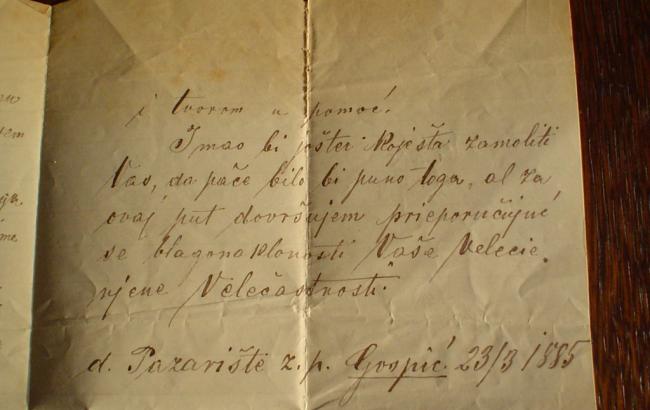 i tvorom u pomoć.
Imao bi jošter koješta zamoliti
Vas, da pače bilo bi puno toga, al za
ovaj put dovršujem prieporučujuć
se blagonaklonosti Vaše Velecie-
njene Velečastnosti.
d. Pazarište z. p. Gospić 23/3 1885